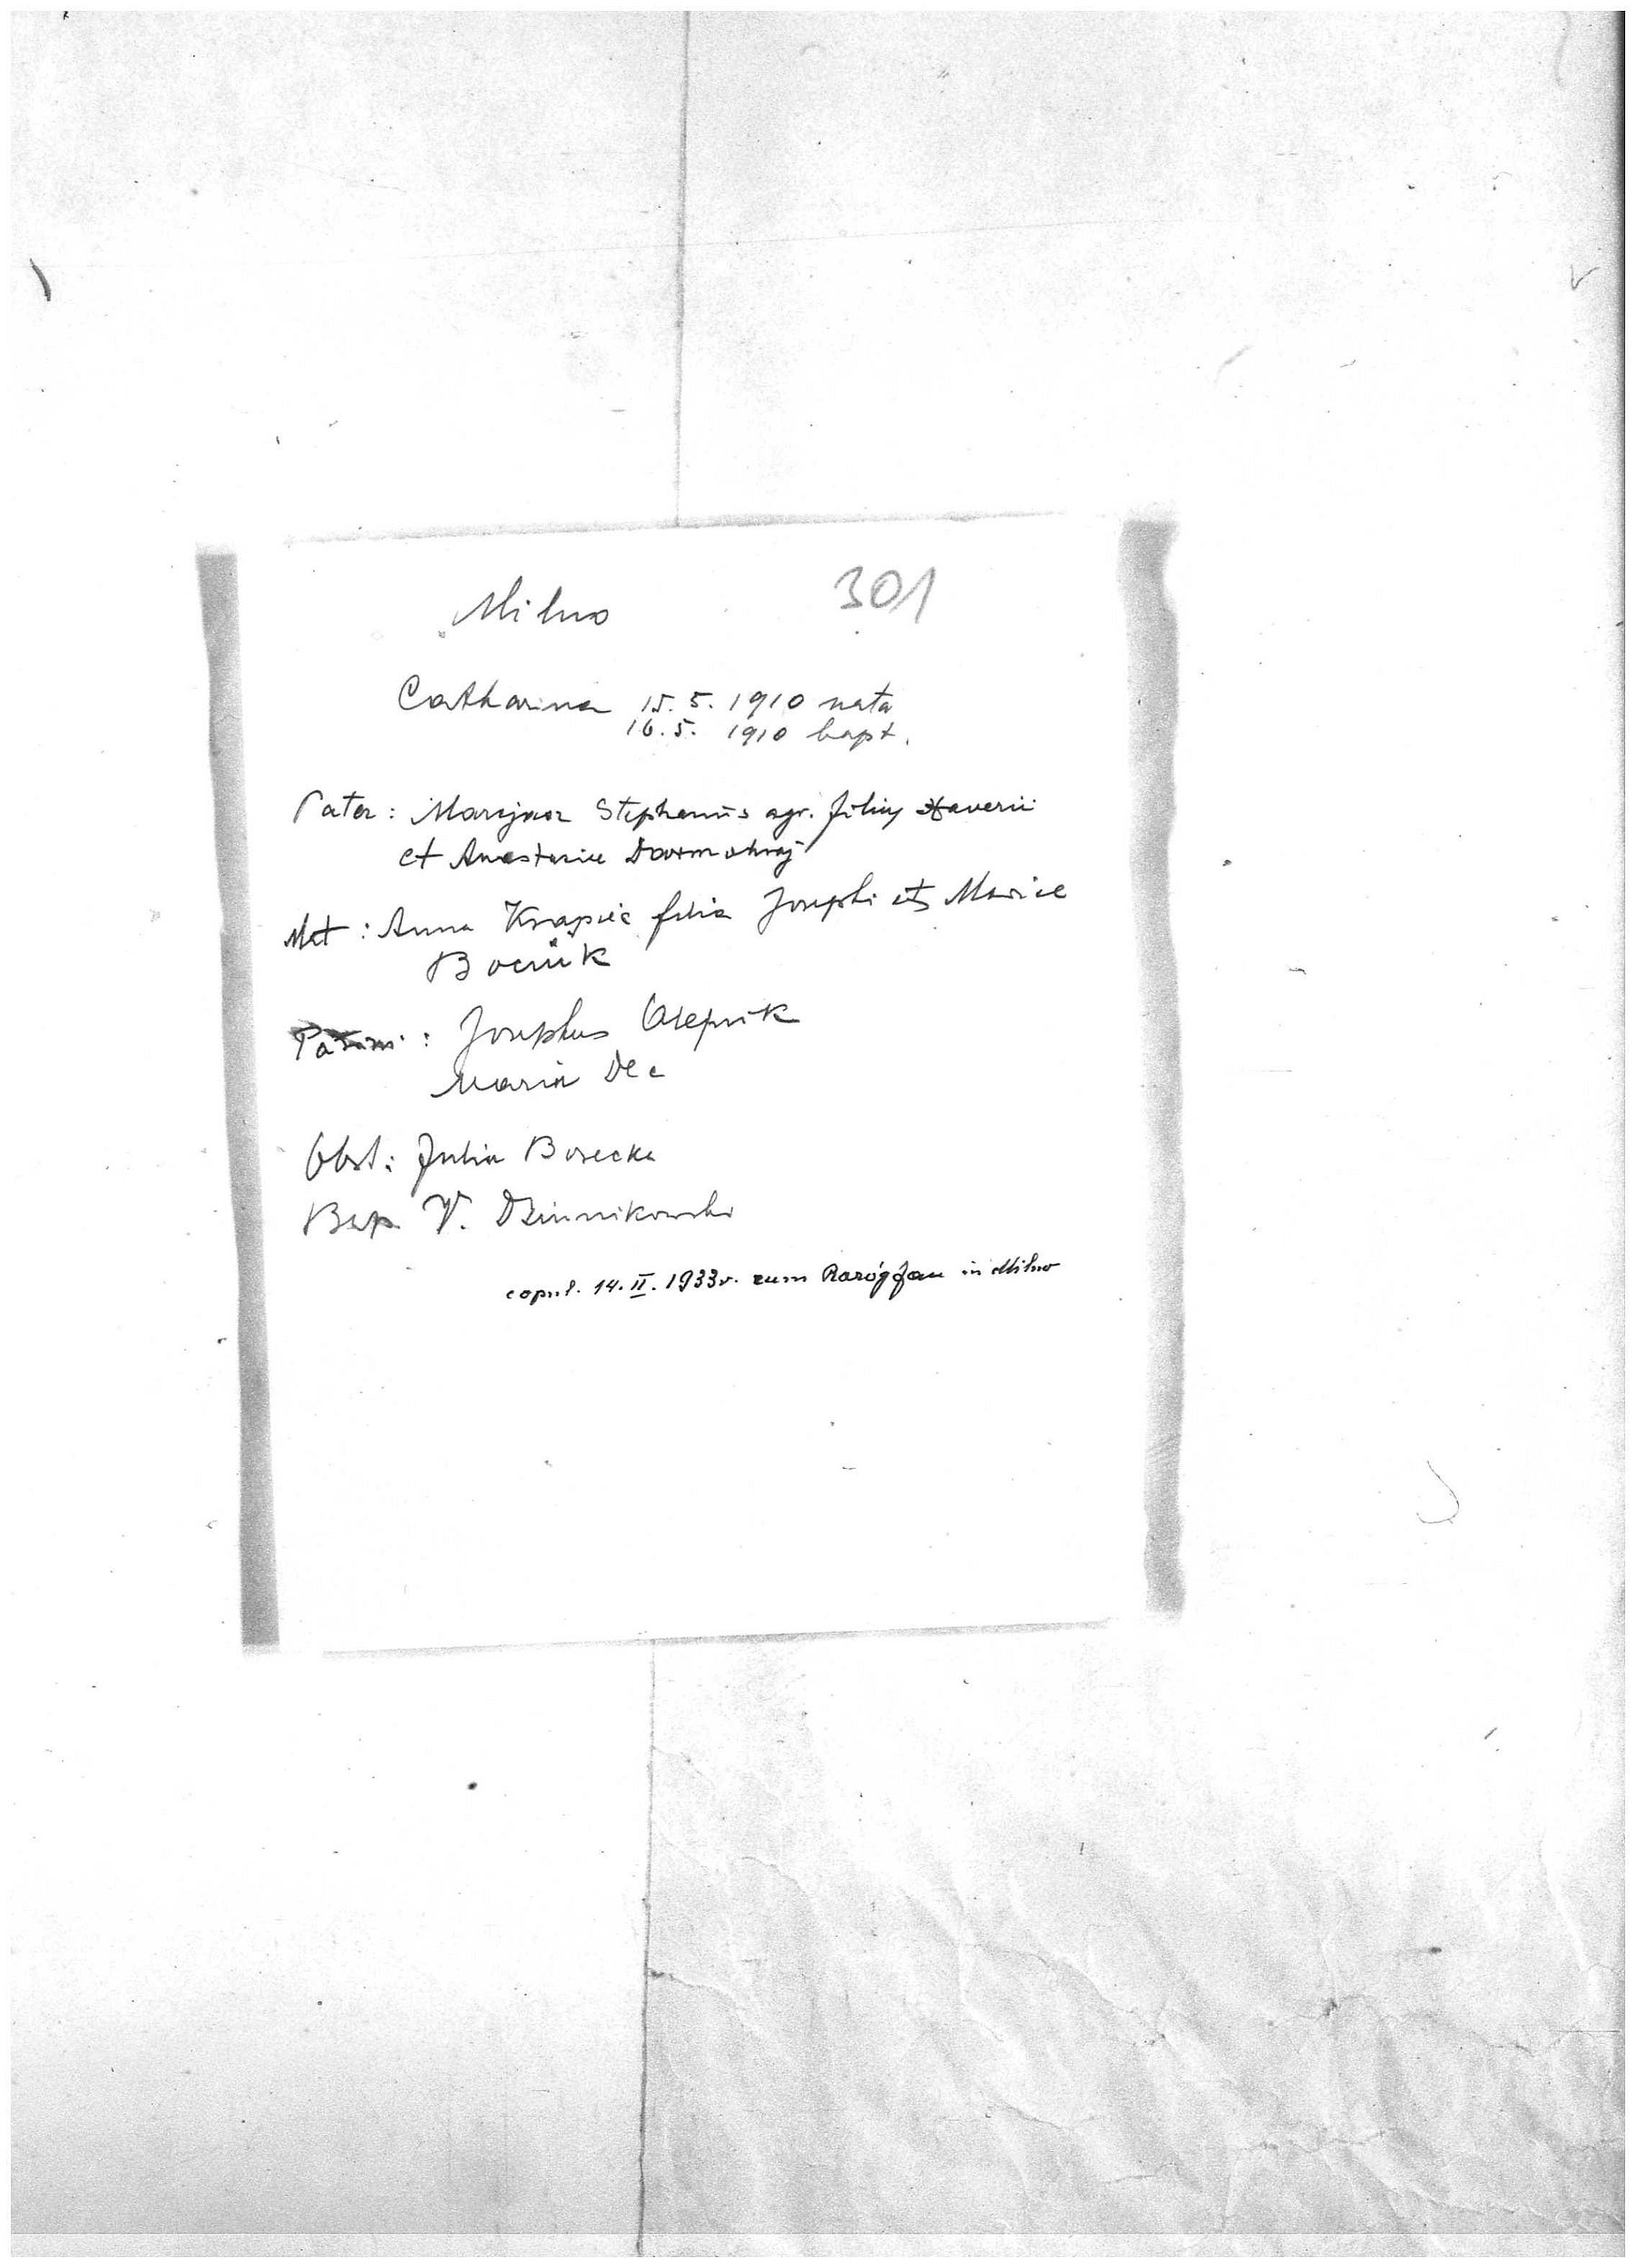 Milno 301
Catharina 15. 5. 1910 nata
16. 5. 1910 bapt.
Pater: Stephanus agr. filius Xaverii
et Anastasiae
Mat: Anna Krąpiec filia Josephi et Mariae
Bociuk
Patrini: Josephus Olejnik
Maria Dec
Obst: Julia Bosecka
Bap. V. Dziunikowski
copul. 14. II. 1933r. cum Raróg Jan in Milno